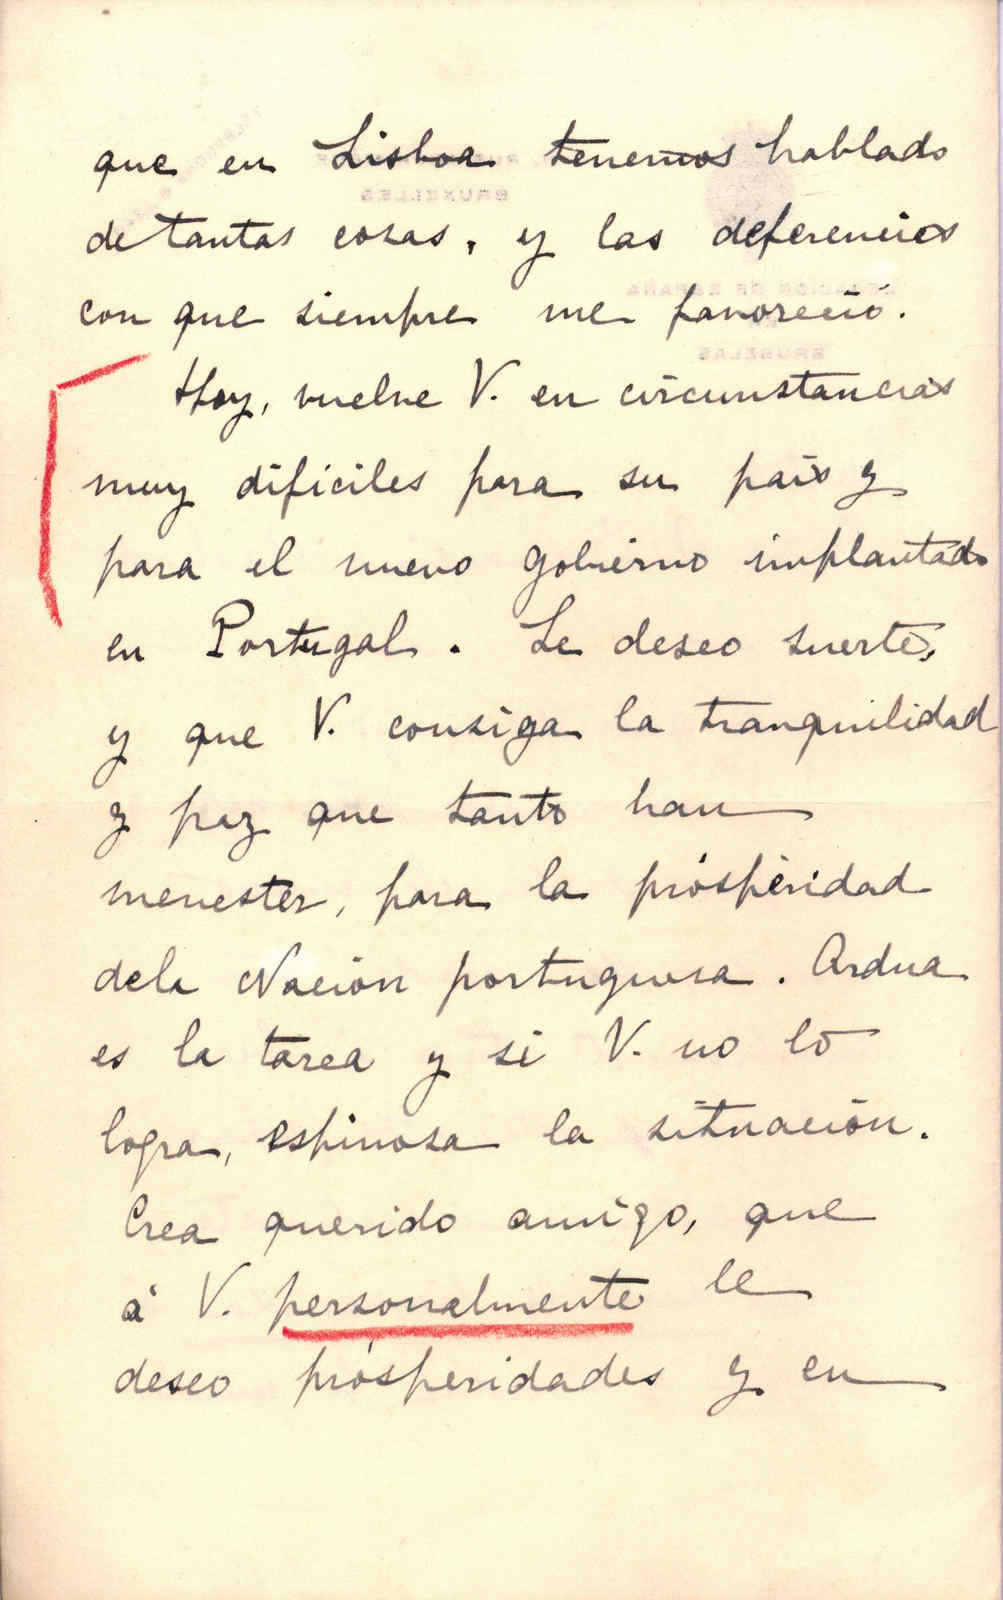 que en Lisboa tenemos hablado
de tantas cosas, y las deferencias
con que siempre me favoreció.
Hoy, vuelve V. en circunstancias
muy dificiles para su país y
para el nuevo gobierno implantado
en Portugal. Le deseo suerte,
y que V. consiga la tranquilidad
y paz que tanto han
menester, para la prósperidad
dela Nación portuguesa. Ardua
es la tarea y si V. no lo
logra, espinosa la situación.
Crea querido amigo, que
á V. personalmente le
deseo prósperidades y en
BRUXELLES
LEGACIÓN DE ESPAÑA
BRUSELAS